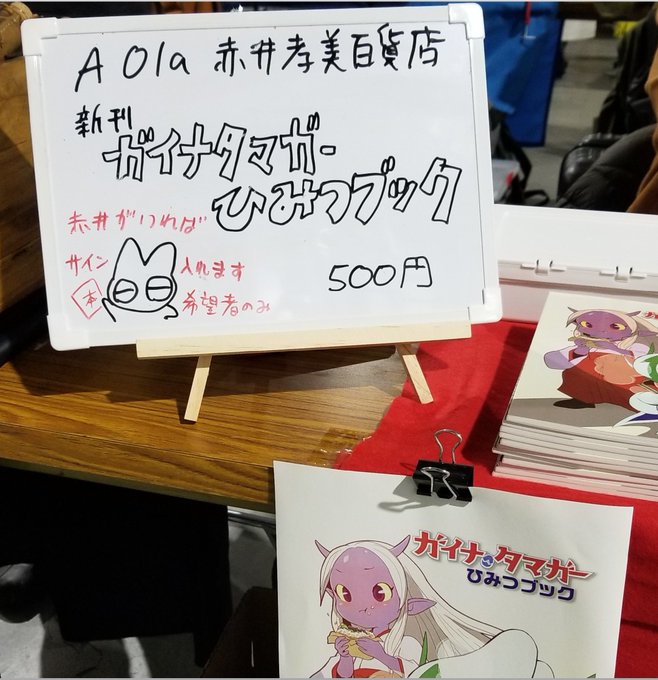 A 01a 赤井孝美百貨店
新刊
ガイナタマガー
ひみつブック
赤井がいれば
サイン入れます
本
希望者のみ
500円
ガイナタマガー
ひみつブック